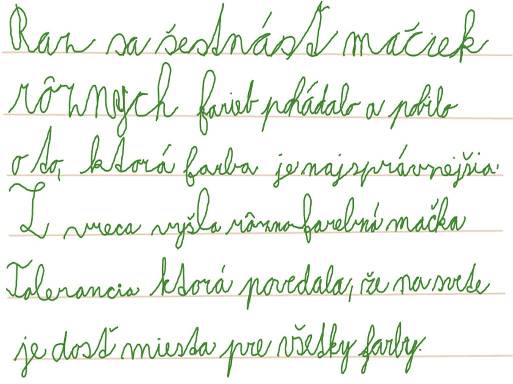 Raz sa šestnásť mačiek
rôznych farieb pohádalo a pobilo
o to, ktorá farba je najsprávnejšia.
Z vreca vyšla rôznofarebná mačka
Tolerancia ktorá povedala, že na svete
je dosť miesta pre všetky farby.